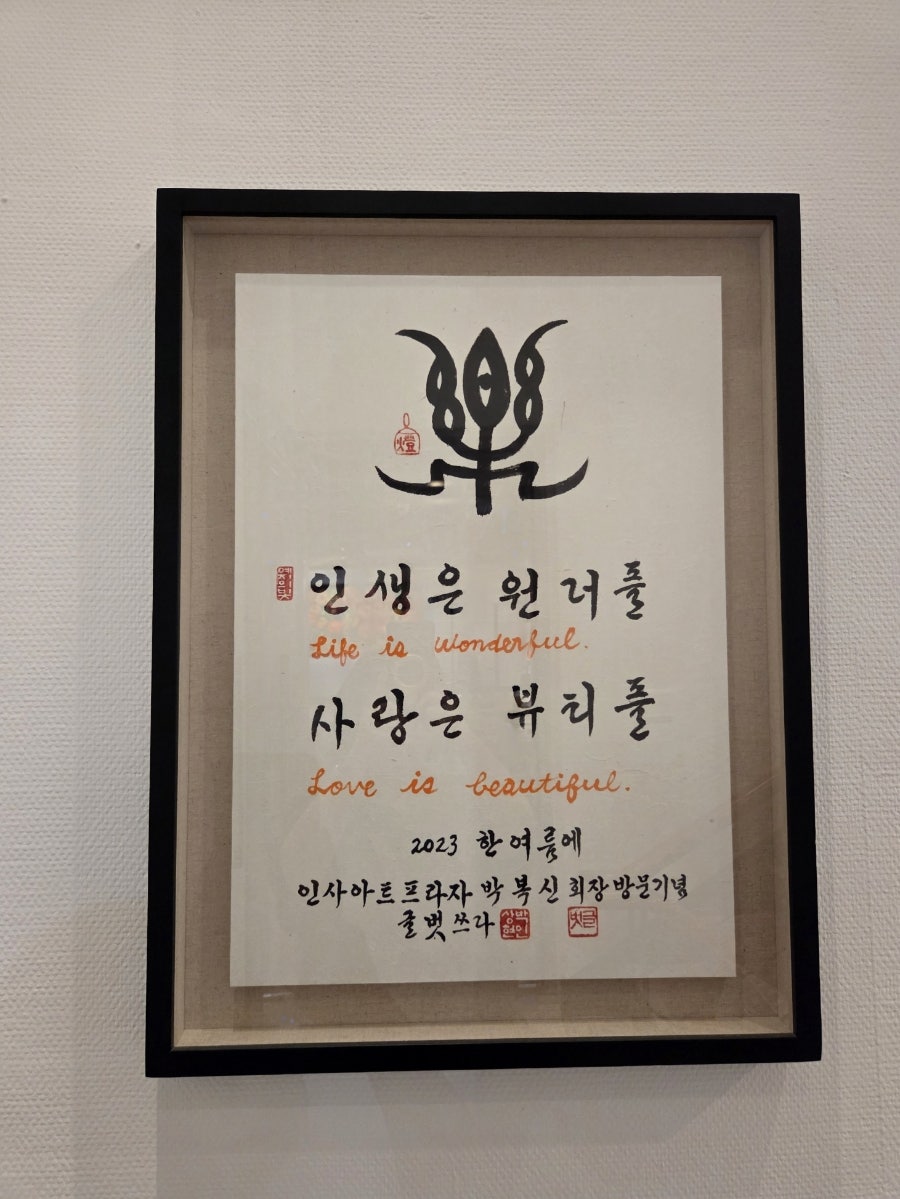 樂
燈
예의벗
인생은 원더풀
Life is Wonderful.
사랑은 뷰티풀
Love is beautiful.
2023 한여름에
인사아트프라자 박복신 회장 방문기념
글벗쓰다